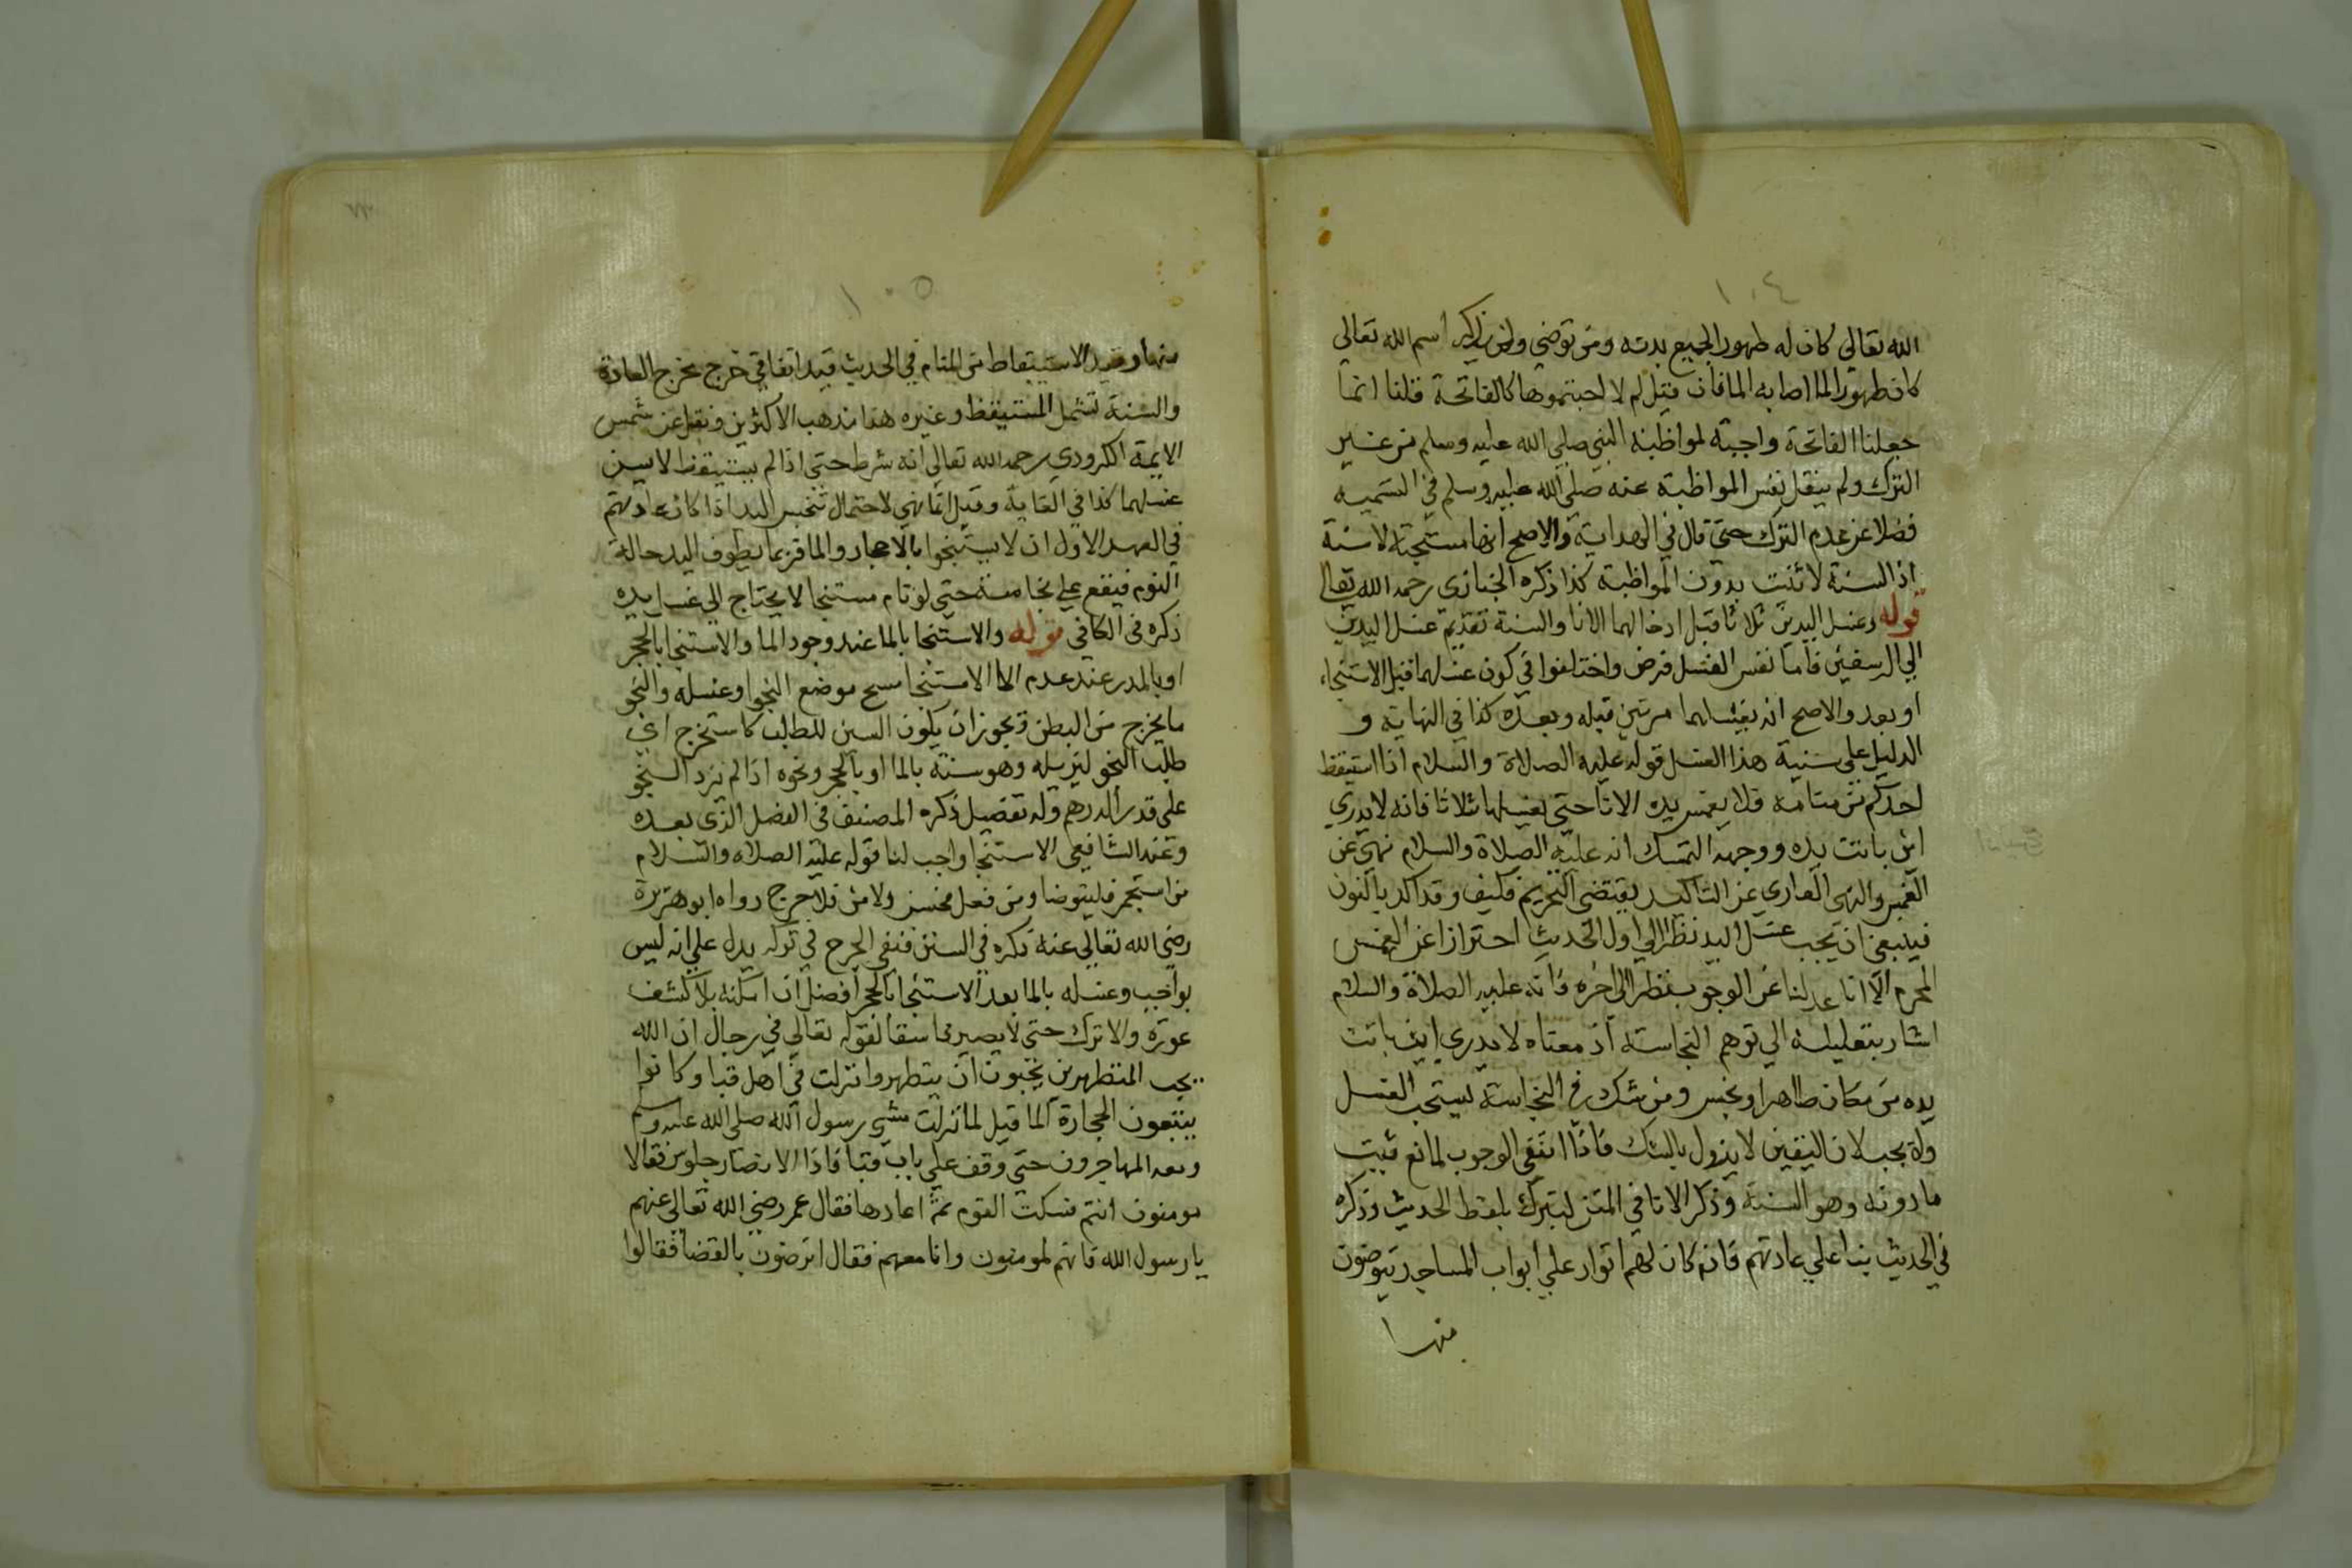 ١٠٤
الله تعالى كان له طهورا لجميع بدنه ومن توضى ولم يذكر اسم الله تعالى
كان طهورا لما اصابه الما فان قيل لم لا اجبتموها كالفاتحة قلنا انما
جعلنا الفاتحة واجبة لمواظبة النبي صلى الله عليه وسلم من غير
الترك ولم ينقل نفس المواظبة عنه صلى الله عليه وسلم في التسمية
فضلا عن عدم الترك حتى قال في الهداية والاصح انها مستحبة لا سنة
اذ السنة لا تثبت بدون المواظبة كذا ذكره الخبازى رحمه الله تعالى
قوله وغسل اليدين ثلاثا قبل ادخالهما الانا والسنة تقديم غسل اليدين
الى الرسغين فاما نفس الغسل فرض واختلفوا في كون غسلهما قبل الاستنجاء
او بعد والاصح انه يغسلهما مرتين قبله وبعده كذا في النهاية و
الدليل على سنية هذا الغسل قوله عليه الصلاة والسلام اذا استيقظ
احدكم من منامه فلا يغمس يده الانا حتى يغسلها ثلاثا فانه لا يدري
اين باتت يده ووجه التمسك انه عليه الصلاة والسلام نهى عن
الغمس والنهى العاري عن التاكيد يقتضى التحريم فكيف وقد اكد بالنون
فينبغى ان يجب غسل اليد نظرا الى اول الحديث احترازا عن الغمس
المحرم الا انا عدلنا عن الوجوب نظرا الى اخره فانه عليه الصلاة والسلام
اشار بتعليله الى توهم النجاسة اذ معناه لا يدري اين باتت
يده من مكان طاهر او نجس ومن شك في النجاسة يستحب الغسل
ولا يجب لان اليقين لا يزول بالشك فاذا انتفى الوجوب لمانع فيثبت
ما دونه وهو السنة وذكر الانا في المتن لتبرك بلفظ الحديث وذكره
في الحديث بنا على عادتهم فانه كان لهم اتوار على ابواب المساجد يتوضون
منها
١٠٥
منها وقيد الاستيقاظ من المنام في الحديث قيد اتفاقي خرج مخرج العادة
والسنة تشمل المستيقظ وغيره هذا مذهب الاكثرين ونقل عن شمس
الايمة الكردري رحمه الله تعالى انه شرط حتى اذا لم يستيقظ لا يسن
غسلهما كذا في الغاية وقيل انما نهي لاحتمال تنجس اليد اذا كان عادتهم
في العهد الاول ان لا يستنجوا بالاحجار والما فربما يطوف اليد حالة
النوم فيقع على نجاسة حتى لو نام مستنجا لا يحتاج الى غسل يده
ذكره في الكافي قوله والاستنجا بالما عند وجود الما والاستنجا بالحجر
او بالمدر عند عدم الما الاستنجا مسح موضع النجو او غسله والنجو
ما يخرج من البطن ويجوز ان يكون السين للطلب كاستخرج اي
طلب النجو ليزيله وهو سنة بالما او بالحجر ونحوه اذا لم يزد النجو
على قدر الدرهم وله تفصيل ذكره المصنف في الفصل الذي بعده
وعند الشافعى الاستنجا واجب لنا قوله عليه الصلاه والسلام
من استجمر فليتوضا ومن فعل فحسن ولا من فلا حرج رواه ابو هريرة
رضى الله تعالى عنه ذكره في السنن فنفى الحرج في تركه يدل على انه ليس
بواجب وغسله بالما بعد الاستنجا بالحجر افضل ان امكنه بلا كشف
عورة والا ترك حتى لا يصير فاسقا لقوله تعالى في رجال ان الله
يحب المتطهرين يحبون ان يتطهروا نزلت في اهل قبا وكانوا
يتبعون الحجارة الما قيل لما نزلت مشي رسول الله صلى الله عليه وسلم
ومعه المهاجرون حتى وقف على باب قبا فاذا الانصار جلوس فقال
مومنون انتم فسكت القوم ثم اعادها فقال عمر رضي الله تعالى عنهم
يا رسول الله فانهم لمومنون وانا معهم فقال اترضون بالقضا فقالوا